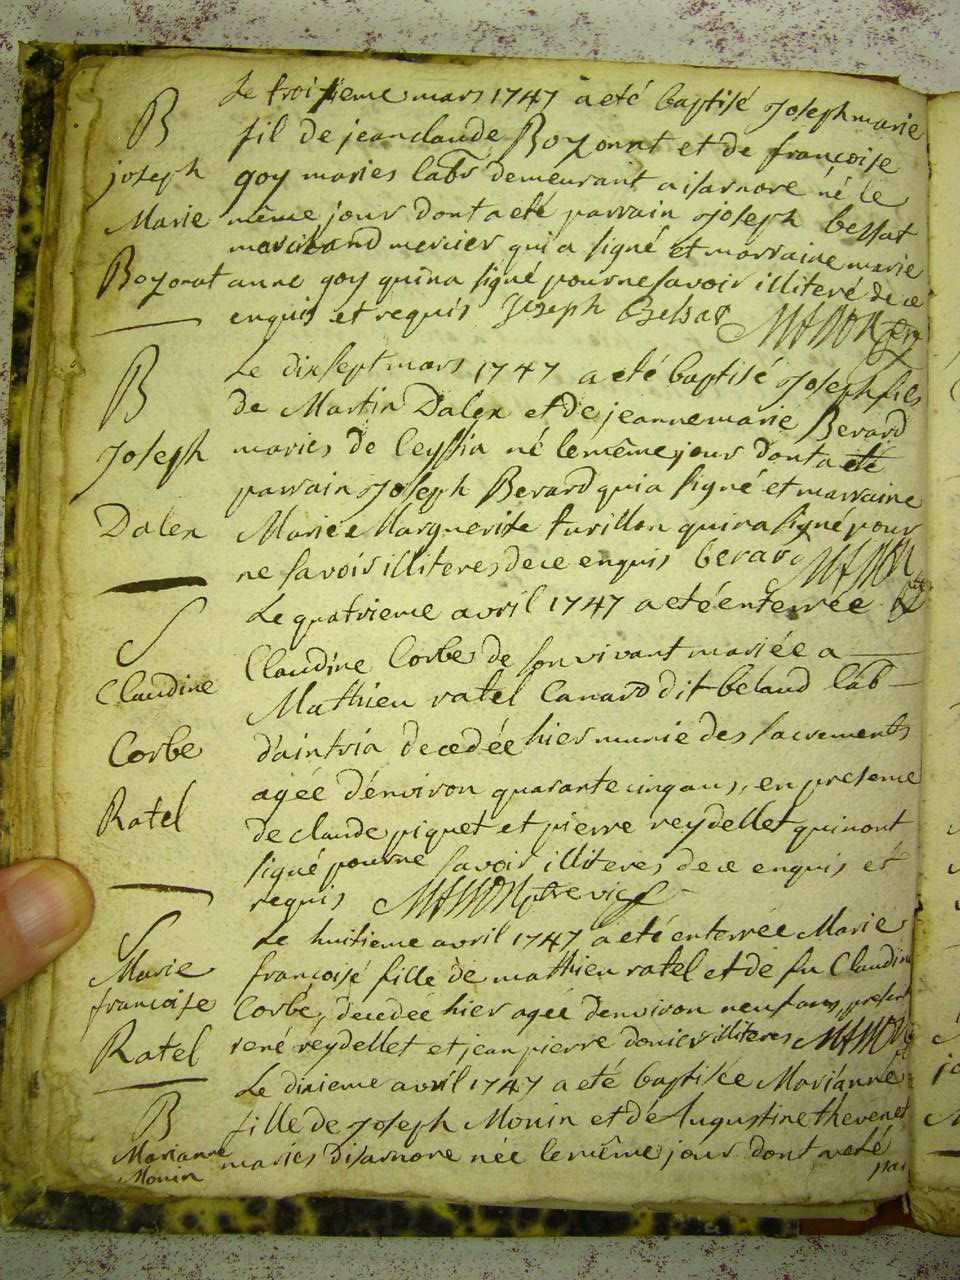 B
joseph
Marie
Bozonat
Le troisieme mars 1747 a eté baptisé joseph marie
fil de jean claude Bozonnat et de françoise
goy maries labs demeurant a isarnore né le
même jour dont a eté parrain joseph bessat
marchand mercier qui a signé et marraine marie
anne goy qui n'a signé pour ne savoir illiteré de ce
enquis et requis Joseph Bessat
B
Joseph
Dalex
Le dix sept mars 1747 a eté baptisé Joseph fils
de Martin Dalex et de jeanne marie Berard
maries de Ceyssia né le même jour dont a eté
parrain Joseph Berard qui a signé et marraine
Marie Marguerite furillon qui n'a signé pour
ne savoir illiteres de ce enquis berard
S
Claudine
Corbe
Ratel
Le quatrieme avril 1747 a eté enterrée
Claudine Corbe de son vivant mariée a
Mathieu ratel Canard dit beland lab
d'aintria decedée hier munie des sacrements
agée d'environ quarante cinq ans, en presence
de claude piquet et pierre reydellet qui n'ont
signé pour ne savoir illiteres de ce enquis et
requis
S
Marie
françoise
Ratel
Le huitieme avril 1747 a eté enterrée Marie
françoise fille de mathieu ratel et de fu Claudine
Corbe, decedée hier agée d'environ neuf ans, present
rené reydellet et jean pierre donier illiteres
B
Marianne
Monin
Le dixieme avril 1747 a eté baptisée Marianne
fille de Joseph Monin et de Augustine thevenet
maries d'isarnore née le même jour dont a eté
par